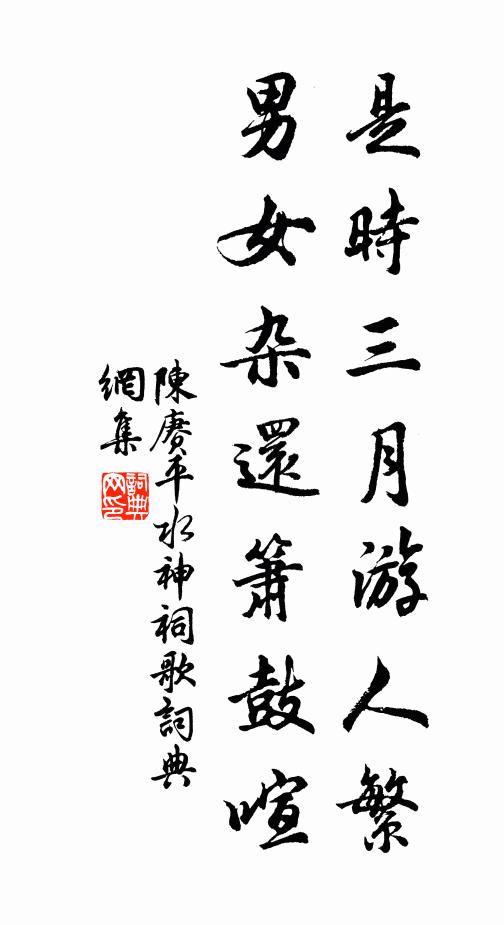 是時三月游人繁
男女杂還簫鼓喧
陳賡平水神祠歌詞典
網集
詞典
网印